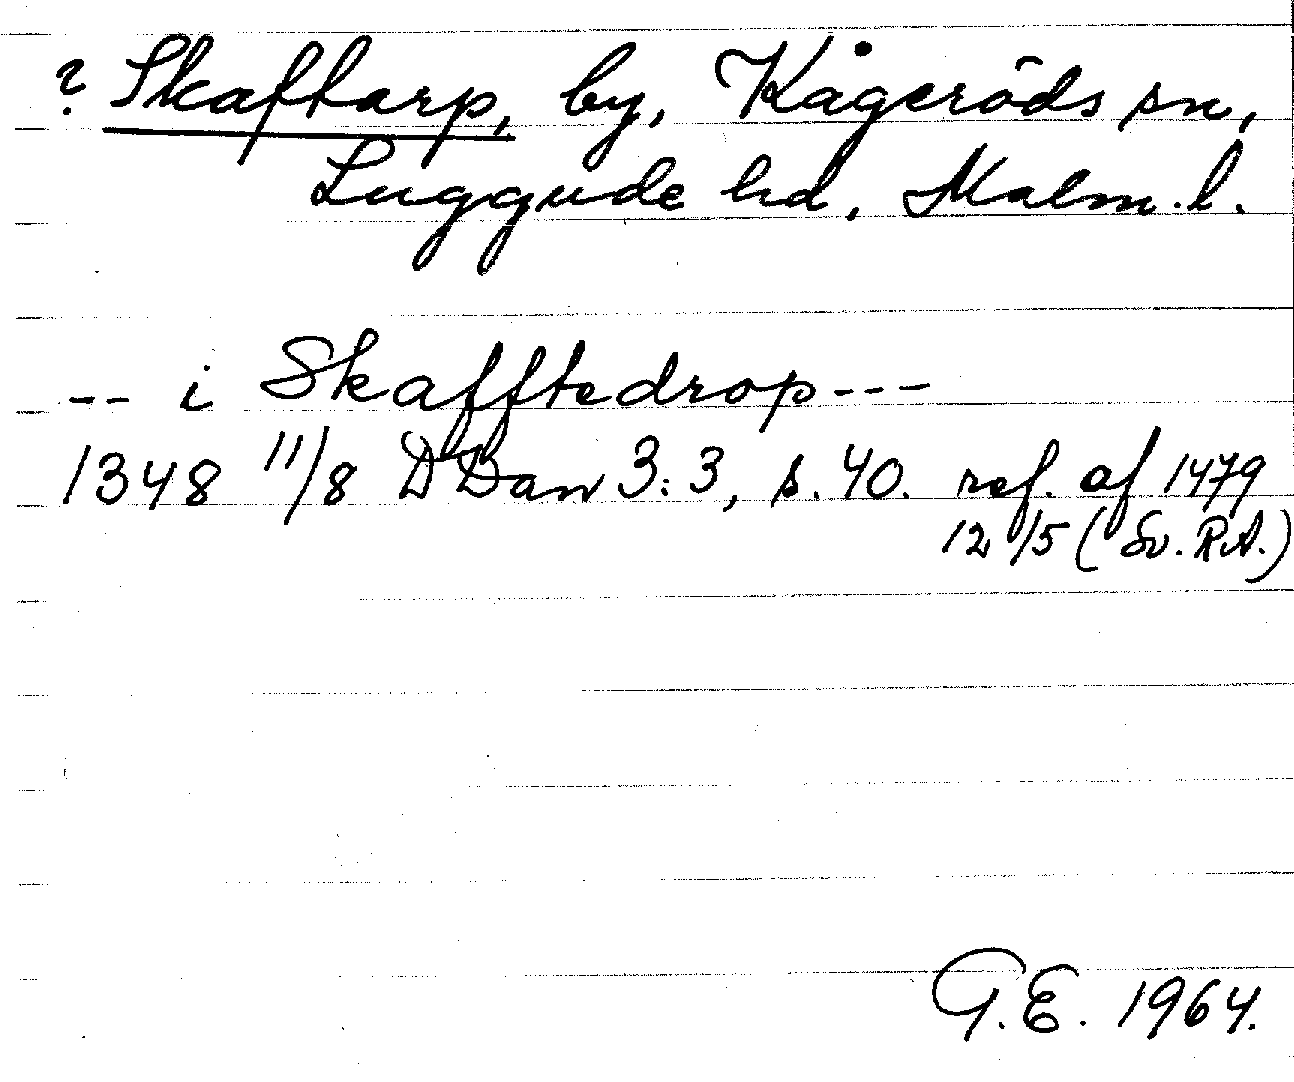 ? Skaftarp, by, Kågeröds sn,
Luggude hd, Malm. l.
-- i Skafftedrop ---
1348 11/8 DDan 3:3, s. 40. ref. af 1479
12/5 (Sv. RA.)
G.E. 1964.